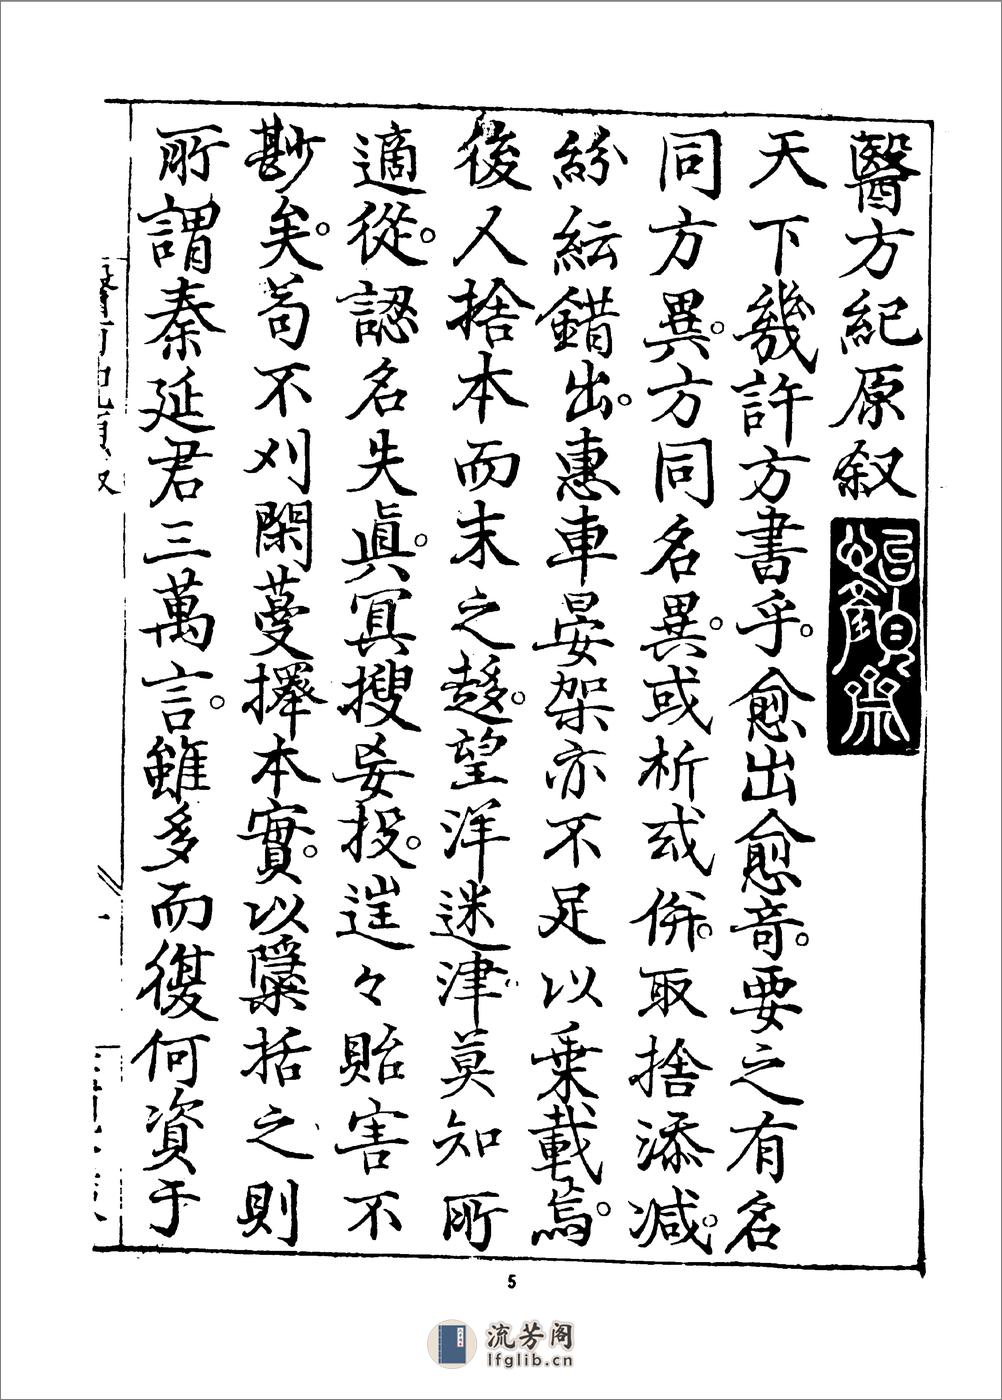 醫方紀原叙
天下幾許方書乎。愈出愈竒。要之有名
同方異。方同名異。或析或併。取捨添减。
紛紜錯出。惠車晏架亦不足以乗載焉。
後人捨本而末之趍。望洋迷津。莫知所
適從。認名失眞。冥搜妄投。逞々貽害不
尠矣。苟不刈閑蔓擇本實。以檃括之則
所謂秦延君三萬言。雖多而復何資于
5
流芳阁
lfglib.cn